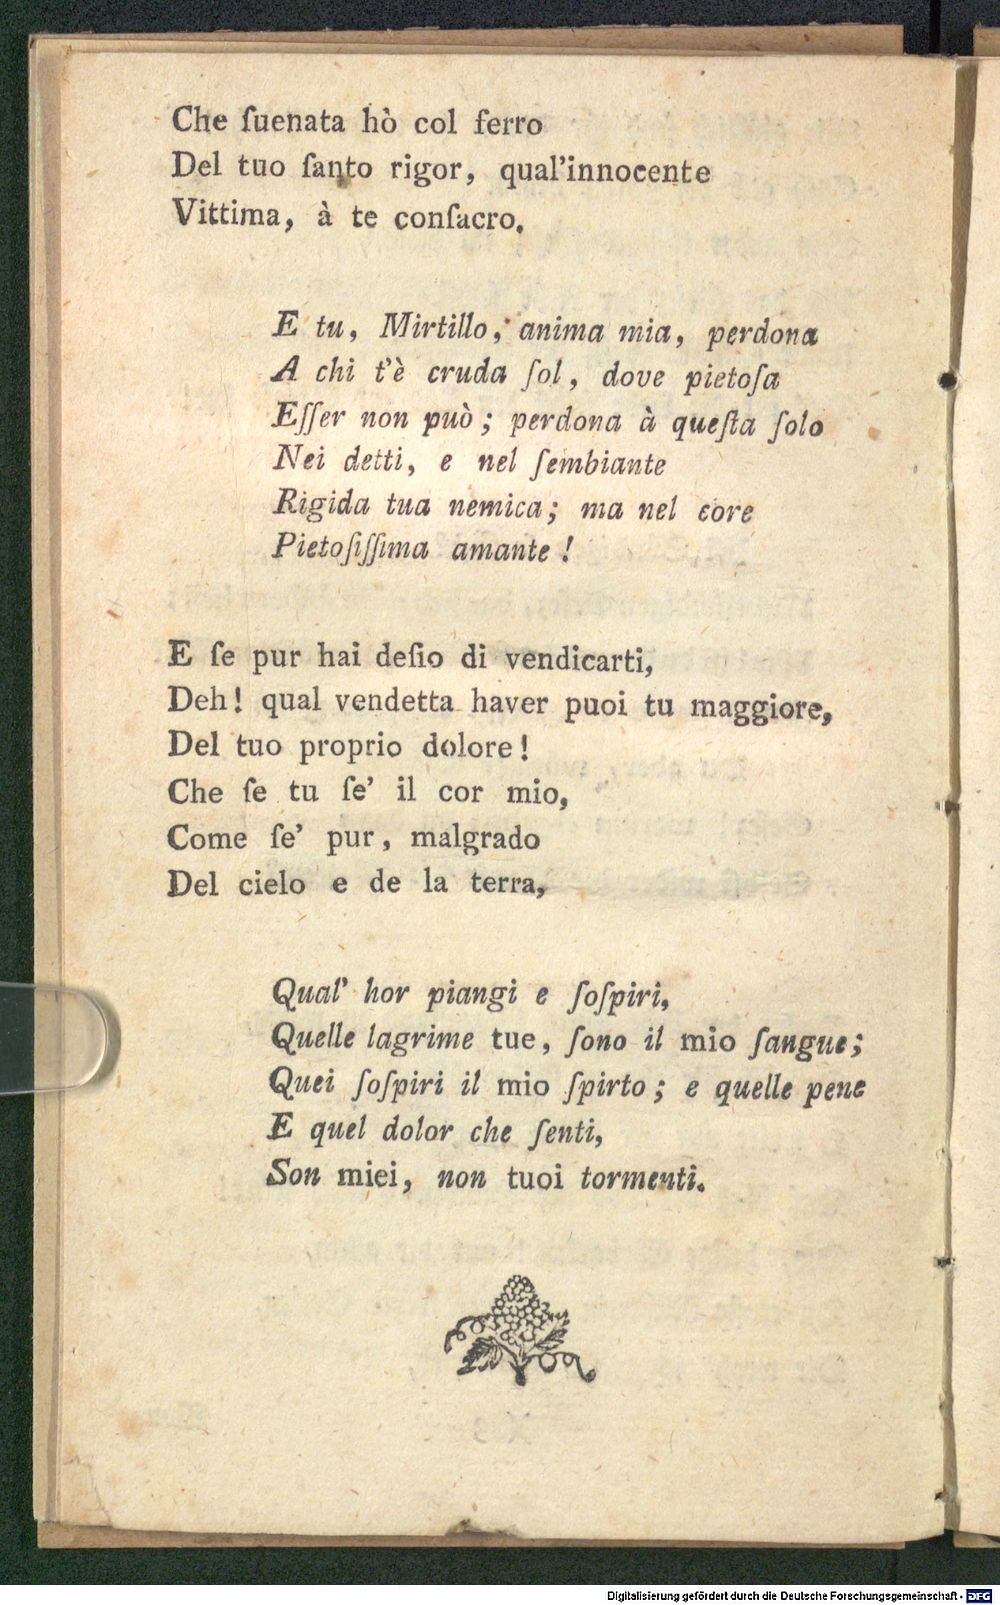 Che ſuenata hò col ferro
Del tuo ſanto rigor, qual'innocente
Vittima, à te conſacro.
E tu, Mirtillo, anima mia, perdona
A chi t'è cruda ſol, dove pietoſa
Eſſer non può; perdona à queſta ſolo
Nei detti, e nel ſembiante
Rigida tua nemica; ma nel core
Pietoſiſſima amante!
E ſe pur hai deſio di vendicarti,
Deh! qual vendetta haver puoi tu maggiore,
Del tuo proprio dolore!
Che ſe tu ſe' il cor mio,
Come ſe' pur, malgrado
Del cielo e de la terra,
Qual' hor piangi e ſoſpiri,
Quelle lagrime tue, ſono il mio ſangue;
Quei ſoſpiri il mio ſpirto; e quelle pene
E quel dolor che ſenti,
Son miei, non tuoi tormenti.
Digitalisierung gefördert durch die Deutsche Forschungsgemeinschaft - DFG